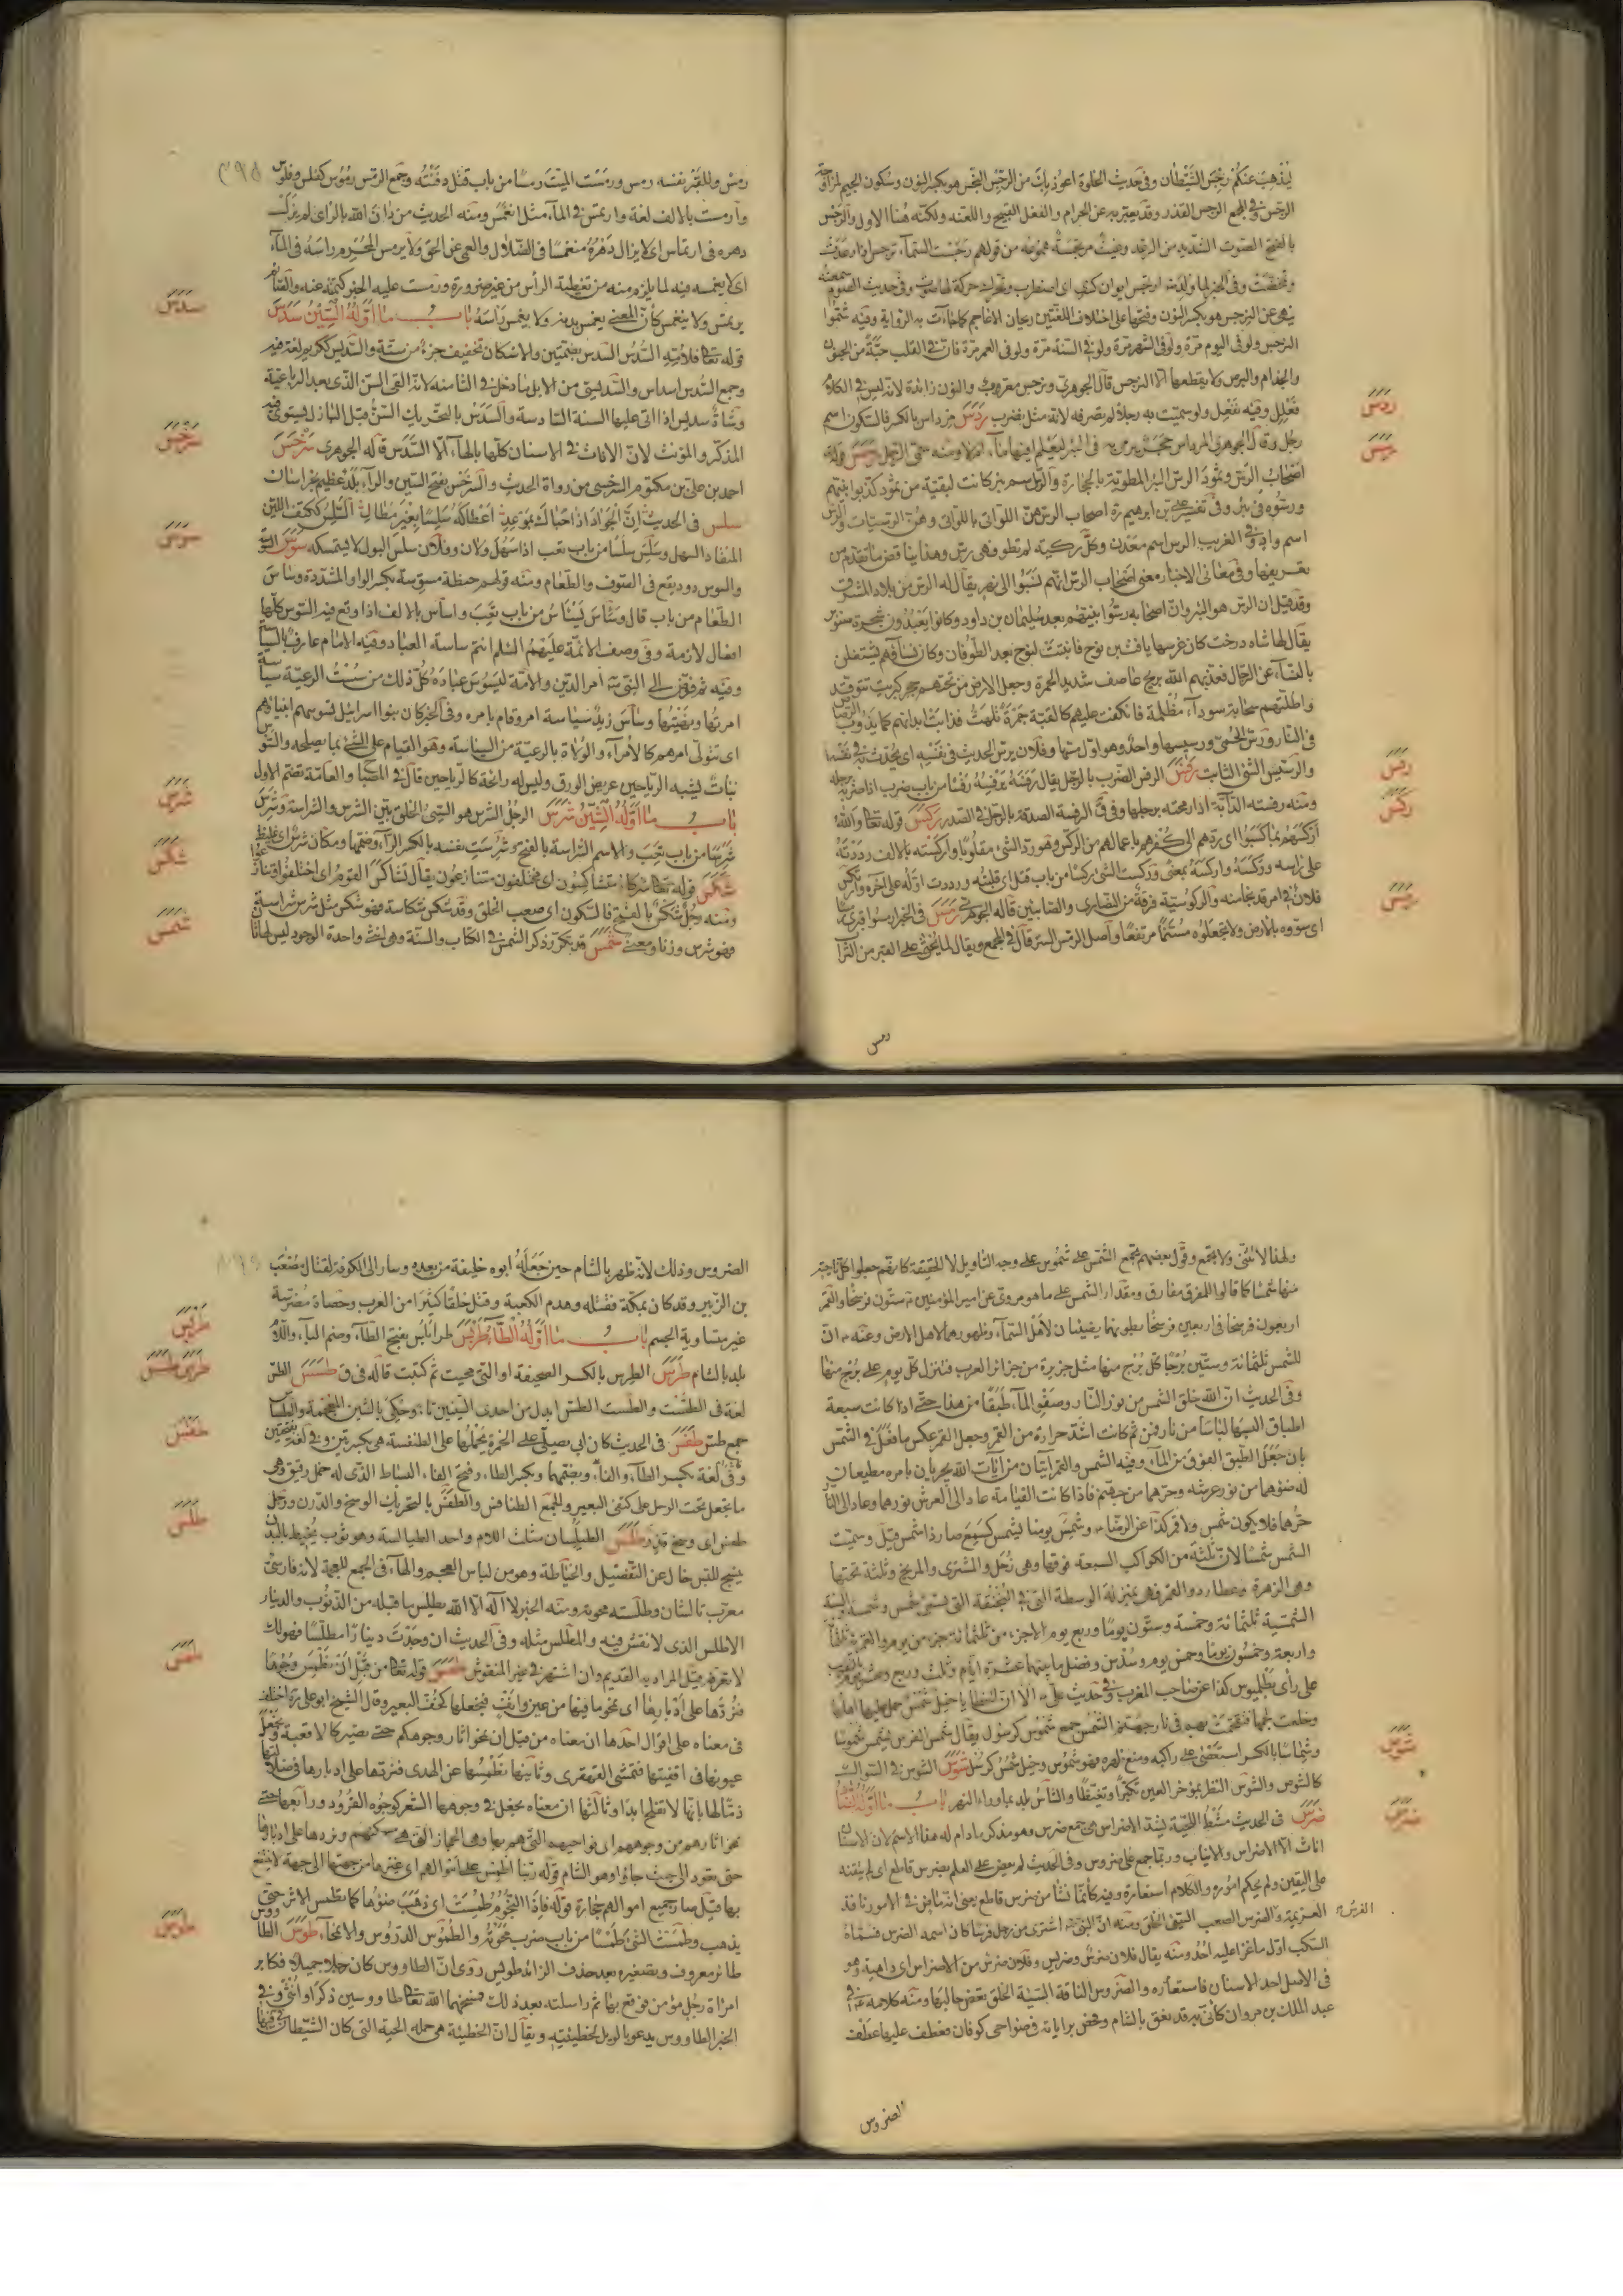 ليذهب عنكم رجس الشيطان وفي حديث الخلوة اعوذ بك من الرجس النجس هو بكسر النون وسكون الجيم
الرجس وفي المجمع الرجس القذر وقد يعبر به عن الحرام والفعل القبيح واللعنة ولكنه هنا الاول والرجس
بالفتح الصوت الشديد من الرعد
ينهى عن النرجس هو بكسر النون وفتحها على اختلاف اللغتين ريحان الاعاجم كما جاءت به الرواية وفيه شموا
النرجس ولو في اليوم مرة ولو في الشهر مرة ولو في السنة مرة ولو في العمر مرة فان في القلب حبة من الجنون
والجذام والبرص ولا يقطعها الا النرجس قال الجوهري ونرجس معروف والنون زائدة لانه ليس في الكلام
فعلل وفيه نفعل ولو سميت به رجلا لم تصرفه لانه مثل نضرب ردس مرداس بالكسر فالسكون اسم
اصحاب الرس وثمود الرس البئر المطوية بالحجارة والرس اسم بئر كانت لبقية من ثمود كذبوا نبيهم
ورسوه في بئر وفي تفسير علي بن ابراهيم ره اصحاب الرس هن اللواتي باللواتي وهن الرسيات والرس
اسم واد وفي الغريب الرس اسم معدن وكل ركية لم تطو فهي رس وهذا يناقض ما تقدم من
تعريفها وفي معاني الاخبار معنى اصحاب الرس انهم نسبوا الى نهر يقال له الرس من بلاد المشرق
وقد قيل ان الرس هو البئر وان اصحابه رسوا نبيهم بعد سليمان بن داود وكانوا يعبدون شجرة صنوبر
يقال لها شاه درخت كان غرسها يافث بن نوح فانبتت لنوح بعد الطوفان وكان نساؤهم يشتغلن
بالنساء عن الرجال فعذبهم الله بريح عاصف شديد الحمرة وجعل الارض من تحتهم حجر كبريت تتوقد
واظلتهم سحابة سوداء مظلمة فانكفت عليهم كالقبة جمرة تلهب فذابت ابدانهم كما يذوب الرصاص
في النار ورس الحمى ورسيسها واحد وهو اول مسها وفلان يرس الحديث في نفسه اي يحدث به نفسه
والرسيس الشيء الثابت رفس الرفس الضرب بالرجل يقال رفسه يرفسه رفسا من باب ضرب اذا ضربه برجله
ومنه رفسته الدابة اذا رمحته برجلها وفي ق الرفسة الصدمة بالرجل في الصدر ركس قوله تعالى والله
اركسهم بما كسبوا اي ردهم الى كفرهم باعمالهم من الركس وهو رد الشيء مقلوبا واركسته بالالف رددته
على راسه وركسه واركسه بمعنى وركست الشيء ركسا من باب قتل اي قلبته ورددت اوله على آخره وارتكس
فلان في امر قد نجا منه والركوسية فرقة من النصارى والصابئين قاله الجوهري رمس في الخبر ارمسوا قبري رمسا
اي سووه بالارض ولا تجعلوه مسنما مرتفعا واصل الرمس الستر قال في المجمع ويقال لما يحثى على القبر من التراب
رمس
ردس
رسس
رفس
ركس
رمس
رمس وللقبر نفسه رمس ورمست الميت رمسا من باب قتل دفنته وجمع الرمس رموس كفلس وفلوس
وارمست بالالف لغة وارتمس في الماء مثل انغمس ومنه الحديث من دان الله بالراي لم يزل
دهره في ارتماس اي لا يزال دهره منغمسا في الضلال والعمى عن الحق ولا يرمس المحرم راسه في الماء
اي لا يغمسه فيه لما يلزم منه من تغطية الرأس من غير ضرورة ورمست عليه الخبر كتمته عنه والصائم
يرتمس ولا ينغمس باب ما اوله السين سدس
قوله تعالى فلامه السدس السدس بضمتين والاسكان تخفيف جزء من ستة والسديس ككريم لغة فيه
وجمع السدس اسداس والسديس من الابل ما دخل في الثامنة لانه القى السن الذي بعد الرباعية
وشاة سديس اذا اتى عليها السنة السادسة والسدس بالتحريك السن قبل البازل يستوي فيه
المذكر والمؤنث لان الاناث في الاسنان كلها بالهاء الا السدس قاله الجوهري سرخس
احمد بن علي بن مكتوم السرخسي من رواة الحديث والسرخس بفتح السين والراء بلد عظيم بخراسان
سلس في الحديث
المنقاد السهل وسلس سلسا من باب تعب اذا سهل ولان وفلان سلس البول لا يستمسكه سوس
والسوس دود يقع في الصوف والطعام ومنه قولهم حنطة مسوسة بكسر الواو المشددة وساس
الطعام من باب قال وساس يساس من باب تعب واساس بالالف اذا وقع فيه السوس كلها
افعال لازمة وفي وصف الائمة عليهم السلم انتم ساسة العباد وفيه الامام عارف بالسياسة
وفيه ثم فوض الى النبي ص امر الدين والامة ليسوس عباده كل ذلك من سست الرعية سياسة
امرتها ونهيتها وساس زيد سياسة امر وقام بامره وفي الخبر كان بنوا اسرائيل تسوسهم انبياؤهم
اي تتولى امرهم كالامراء والولاة بالرعية من السياسة وهو القيام على الشيء بما يصلحه والسوس
نبات يشبه الرياحين عريض الورق وليس له رائحة كالرياحين قال في المصباح والعامة تضم الاول
باب ما اوله الشين شرس الرجل الشرس هو السيئ الخلق بين الشرس والشراسة وشرس
شرسا من باب تعب والاسم الشراسة بالفتح وشرست نفسه بالكسر الراء وضمها ومكان شرس اي غليظ
شكس قوله تعالى شركاء متشاكسون اي مختلفون متنازعون يقال تشاكس القوم اي اختلفوا وتنازعوا
ومنه رجل شكس بالفتح فالسكون اي صعب الخلق وقد شكس شكاسة فهو شكس مثل شرس شراسة
فهو شرس وزنا ومعنى شمس قد تكرر ذكر الشمس في الكتاب والسنة وهي انثى واحدة الوجود ليس لها ثان
سدس
سرخس
سوس
شرس
شكس
شمس
ولهذا لا تثنى ولا تجمع وقول بعضهم تجمع الشمس على شموس على وجه التاويل لا الحقيقة كانهم جعلوا كل ناحية
منها شمسا كما قالوا للمفرق مفارق ومقدار الشمس على ما هو مروي عن امير المؤمنين ع ستون فرسخا والقمر
اربعون فرسخا في اربعين فرسخا بطونهما يضيئان لاهل السماء وظهورهما لاهل الارض وعنه ع ان
للشمس ثلثمائة وستين برجا كل برج منها مثل جزيرة من جزائر العرب فتنزل كل يوم على برج منها
وفي الحديث ان الله خلق الشمس من نور النار وصفو الماء طبقا من هذا حتى اذا كانت سبعة
اطباق البسها لباسا من نار فمن ثم كانت اشد حرارة من القمر وجعل القمر عكس ما فعل في الشمس
بان جعل الطبق الفوق من الماء وفيه الشمس والقمر آيتان من آيات الله يجريان بامره مطيعان
له ضوءهما من نور عرشه وحرهما من جهنم فاذا كانت القيامة عاد الى العرش نورهما وعاد الى النار
حرهما فلا يكون شمس ولا قمر كذا عن الرضا ع وشمس يومنا يشمس كسمع صار ذا شمس قيل وسميت
الشمس شمسا لان ثلثة من الكواكب السبعة فوقها وهي زحل والمشتري والمريخ وثلثة تحتها
وهي الزهرة وعطارد والقمر فهي بمنزلة الوسطة التي في المخنقة التي تسمى شمس وشمسة السنة
الشمسية ثلثمائة وخمسة وستون يوما وربع يوم الا جزء من ثلثمائة جزء من يوم والقمرية ثلثمائة
واربعة وخمسون يوما وخمس يوم وسدس وفضل ما بينهما عشرة ايام وثلث وربع
على راي بطلميوس كذا عن صاحب المغرب وفي حديث علي ع الا ان الخطايا خيل شمس حمل عليها اهلها
وخلعت لجمها فتقحمت بهم في نار جهنم الشمس جمع شموس كرسول يقال شمس الفرس يشمس شموسا
وشماسا بالكسر استعصى على راكبه ومنع ظهره فهو شموس وخيل شمس كرسل شوس الشوس في السواك
كالشوس والشوس النظر بمؤخر العين تكبرا وتغيظا والشاس بلد بما وراء النهر باب ما اوله الضاد
ضرس في الحديث مشط اللحية يشد الاضراس هي جمع ضرس وهو مذكر ما دام له هذا الاسم لان الاسنان
اناث الا الاضراس والانياب وربما جمع على ضروس وفي الحديث لم يعض على العلم بضرس قاطع اي لم يتقنه
الفرس
السكب اول ما غزا عليه احد ومنه يقال فلان ضرس وضريس وفلان ضرس من الاضراس اي داهية وهو
في الاصل احد الاسنان فاستعاره والضروس الناقة السيئة الخلق تعض حالبها ومنه كلامه ع في
عبد الملك بن مروان كاني به قد نعق بالشام وفحص براياته في ضواحي كوفان فعطف عليها عطف
الضروس
شوس
ضرس
الضروس وذلك لانه ظهر بالشام حين جعله ابوه خليفة من بعده وسار الى الكوفة لقتال مصعب
بن الزبير وقد كان بمكة فقتله وهدم الكعبة وقتل خلقا كثيرا من العرب وحصاة مضرسة
غير متساوية الجسم باب ما اوله الطاء طربلس طرابلس بفتح الطاء وضم الباء واللام
بلد بالشام طرس الطرس بالكسر الصحيفة او التي محيت ثم كتبت قاله في ق طسس الطس
لغة في الطست والطست الطس ابدل من احدى السينين تاء وحكي بالشين المعجمة والطساس
جمع طس طفس في الحديث كان ابي يصلي على الخمرة يجعلها على الطنفسة هي بكسرتين وفي لغة بفتحتين
وفي لغة بكسر الطاء والفاء وبضمهما وبكسر الطاء وفتح الفاء البساط الذي له خمل رقيق وهي
ما تجعل تحت الرحل على كتفي البعير والجمع الطنافس والطفس بالتحريك الوسخ والدرن ورجل
طفس اي وسخ قذر طلس الطيلسان مثلث اللام واحد الطيالسة وهو ثوب يحيط بالبدن
ينسج للبس خال عن التفصيل والخياطة وهو من لباس العجم والهاء في الجمع للعجمة لانه فارسي
معرب تالشان وطلسته محوته ومنه الخبر لا اله الا الله يطلس ما قبله من الذنوب والدينار
الاطلس الذي لا نقش فيه والمطلس مثله وفي الحديث ان وجدت دينارا مطلسا فهو لك
لا تعرفه قيل المراد به القديم وان اشتهر في غير المنقوش طمس قوله تعالى من قبل ان نطمس وجوها
فنردها على ادبارها اي نمحو ما فيها من عين وانف فنجعلها كخف البعير وقال الشيخ ابو علي ره اختلف
في معناه على اقوال احدها ان معناه من قبل ان نمحو اثار وجوهكم حتى تصير كالاقفية ونجعل
عيونها في اقفيتها فتمشي القهقرى وثانيها نطمسها عن الهدى فنردها على ادبارها في ضلالتها
ذما لها بانها لا تفلح ابدا وثالثها ان معناه نجعل في وجوهها الشعر كوجوه القرود ورابعها حتى
نمحو اثارهم من وجوههم اي نواحيهم التي هم بها وهي الحجاز التي هي مسكنهم ونردها على ادبارها
حتى تعود الى حيث جاؤا وهو الشام قوله ربنا اطمس على اموالهم اي غيرها من جهتها الى جهة لا ينتفع
بها قيل صار جميع اموالهم حجارة قوله فاذا النجوم طمست اي ذهب ضوءها كما يطمس الاثر حتى
يذهب وطمست الشيء طمسا من باب ضرب محوته والطموس الدروس والانمحاء طوس الطاووس
طائر معروف وتصغيره بعد حذف الزائد طويس روي ان الطاووس كان رجلا جميلا فكابر
امرأة رجل مؤمن فوقع بها ثم راسلته بعد ذلك فمسخهما الله تعالى طاووسين ذكرا وانثى وفي
الخبر الطاووس يدعو بالويل لخطيئته ويقال ان الخطيئة هي حمله الحية التي كان الشيطان في فيها
طربلس
طرس طسس
طفس
طلس
طمس
طوس